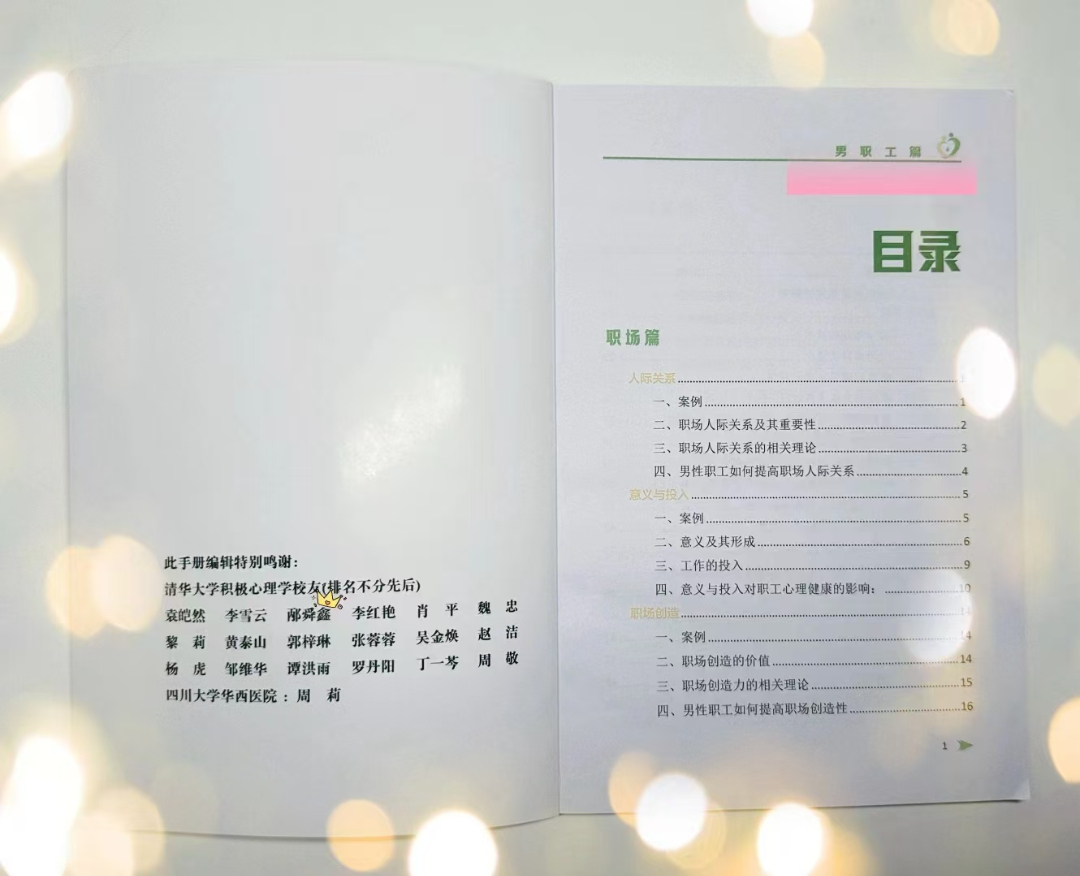 此手册编辑特别鸣谢：
清华大学积极心理学校友(排名不分先后)
袁皑然 李雪云 邴舜鑫 李红艳 肖 平 魏 忠
黎 莉 黄泰山 郭梓琳 张蓉蓉 吴金焕 赵 洁
杨 虎 邹维华 谭洪雨 罗丹阳 丁一芩 周 敬
四川大学华西医院：周 莉
男职工篇
目录
职场篇
人际关系
一、案例 1
二、职场人际关系及其重要性 2
三、职场人际关系的相关理论 3
四、男性职工如何提高职场人际关系 4
意义与投入 5
一、案例 5
二、意义及其形成 6
三、工作的投入 9
四、意义与投入对职工心理健康的影响： 10
职场创造 14
一、案例 14
二、职场创造的价值 14
三、职场创造力的相关理论 15
四、男性职工如何提高职场创造性 16
1